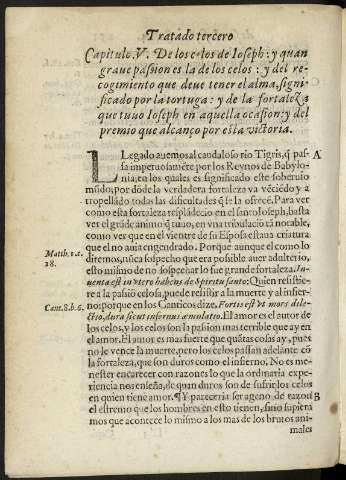 Tratado tercero
Capitulo. V. De los celos de Ioseph: y quan
graue passion es la de los celos: y del re-
cogimiento que deue tener el alma, signi-
ficado por la tortuga: y de la fortaleza
que tuuo Ioseph en aquella ocasion: y del
premio que alcanço por esta victoria.
LLegado auemos al caudaloso rio Tigris, q̃ pas- A
sa impetuosamẽte por los Reynos de Babylo-
nia, en los quales es significado este soberuio
mũdo, por dõde la verdadera fortaleza va vẽciẽdo y a-
tropellãdo todas las dificultades q̃ se la ofrecẽ. Para ver
como esta fortaleza resplãdecio en el santo Ioseph, basta
ver el grãde animo q̃ tuuo, en vna tribulaciõ tã notable,
como ver que en el vientre de su Esposa estaua criatura
que el no auia engendrado. Porque aunque el como lo
Matth. 1. c. diremos, nũca sospechò que era possible auer adulterio,
18. esto mismo de no sospechar lo fue grande fortaleza. In-
uenta est in vtero habens de Spiritu sancto: Quien resistie-
re a la passiõ celosa, puede resistir a la muerte y al infier-
Cant. 8. b. 6. no, porque en los Canticos dize. Fortis est vt mors dile-
ctio, dura sicut infernus æmulatio. El amor es el autor de
los celos, y los celos son la passion mas terrible que ay en
el amor. El amor es mas fuerte que quãtas cosas ay, pues
no le vence la muerte, pero los celos passan adelante cõ
la fortaleza, que son duros como el infierno. No es me-
nester encarecer con razones lo que la ordinaria expe-
riencia nos enseña, de quan duros son de sufrir los celos
en quien tiene amor. ¶ Y pareceria ser ageno de razon B
el estremo que los hombres en esto tienen, si no supiera
mos que acontece lo mismo a los mas de los brutos ani-
males